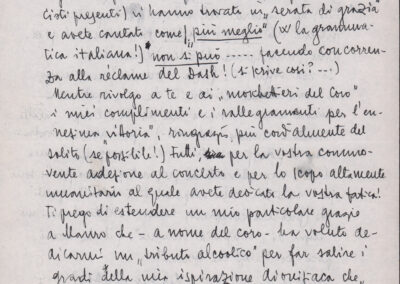 cisti presenti) vi hanno trovato in „serata di grazia"
e avete cantato come „più meglio" (x la gramma-
tica italiana!) * non si può ---- facendo concorren-
za alla réclame del Dash! (si scrive così? ---)
Mentre rivolgo a te e ai „moschettieri del Coro"
i miei complimenti e i rallegramenti per l'en-
nesima „vittoria", ringrazio, più cordialmente del
solito (se possibile!) Tutti, per la vostra commo-
vente adesione al concerto e per lo scopo altamente
umanitario al quale avete dedicato la vostra fatica!
Ti prego di estendere un mio particolare grazie
a Mauro che - a nome del coro - ha voluto de-
dicarmi un „tributo alcoolico" per far salire i
gradi della mia ispirazione dionisiaca che